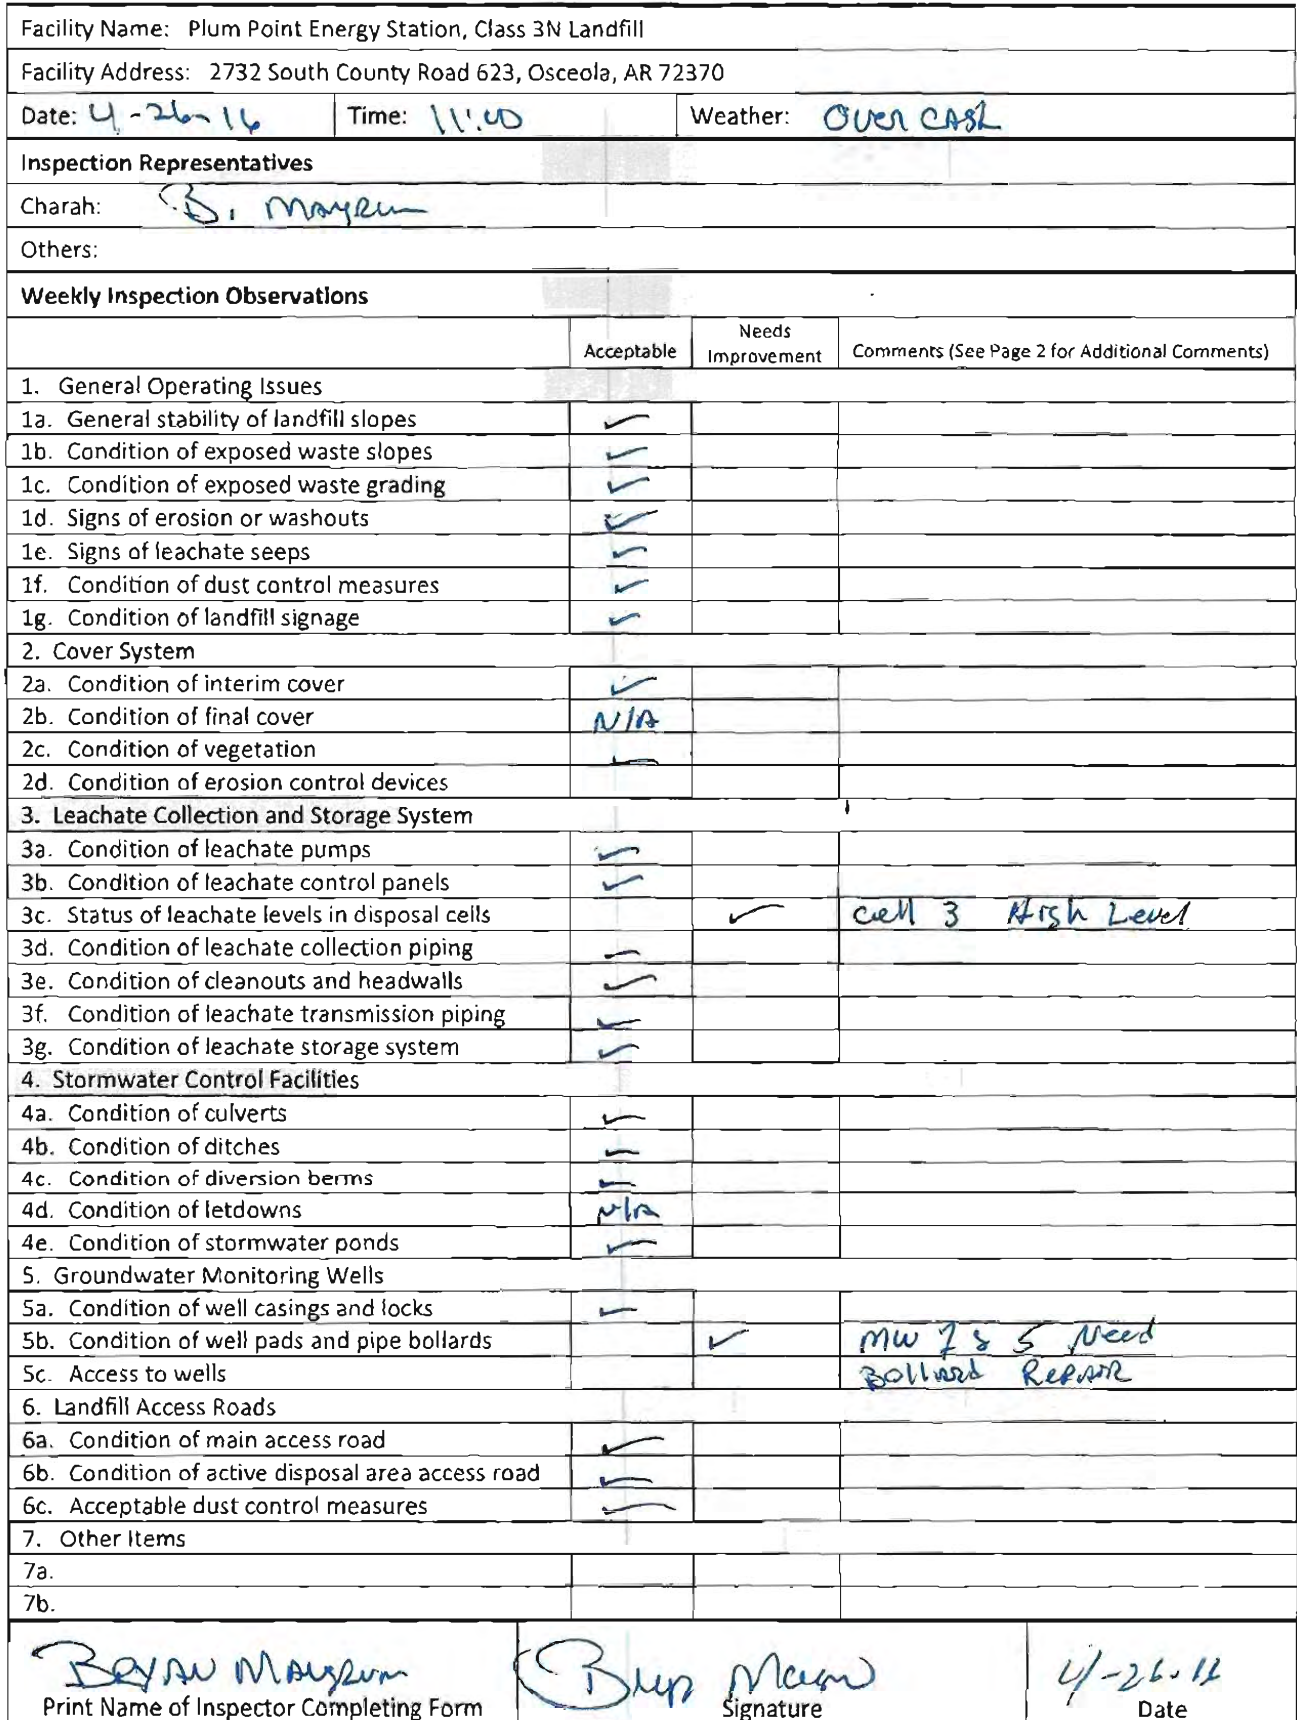 Facility Name: Plum Point Energy Station, Class 3N Landfill
Facility Address: 2732 South County Road 623, Osceola, AR 72370
Date: 4-26-16 Time: 11:00 Weather: Over cast
Inspection Representatives
Charah: B.
Others:
Weekly Inspection Observations
Acceptable Needs Improvement Comments (See Page 2 for Additional Comments)
1. General Operating Issues
1a. General stability of landfill slopes ✓
1b. Condition of exposed waste slopes ✓
1c. Condition of exposed waste grading ✓
1d. Signs of erosion or washouts ✓
1e. Signs of leachate seeps ✓
1f. Condition of dust control measures ✓
1g. Condition of landfill signage ✓
2. Cover System
2a. Condition of interim cover ✓
2b. Condition of final cover N/A
2c. Condition of vegetation ✓
2d. Condition of erosion control devices
3. Leachate Collection and Storage System
3a. Condition of leachate pumps ✓
3b. Condition of leachate control panels ✓
3c. Status of leachate levels in disposal cells ✓ Cell 3 High Level
3d. Condition of leachate collection piping ✓
3e. Condition of cleanouts and headwalls ✓
3f. Condition of leachate transmission piping ✓
3g. Condition of leachate storage system ✓
4. Stormwater Control Facilities
4a. Condition of culverts ✓
4b. Condition of ditches ✓
4c. Condition of diversion berms ✓
4d. Condition of letdowns N/A
4e. Condition of stormwater ponds ✓
5. Groundwater Monitoring Wells
5a. Condition of well casings and locks ✓
5b. Condition of well pads and pipe bollards ✓ MW & 5 Need
5c. Access to wells Bollard Repair
6. Landfill Access Roads
6a. Condition of main access road ✓
6b. Condition of active disposal area access road ✓
6c. Acceptable dust control measures ✓
7. Other Items
7a.
7b.
Bryan
Print Name of Inspector Completing Form Signature Date
4-26-16